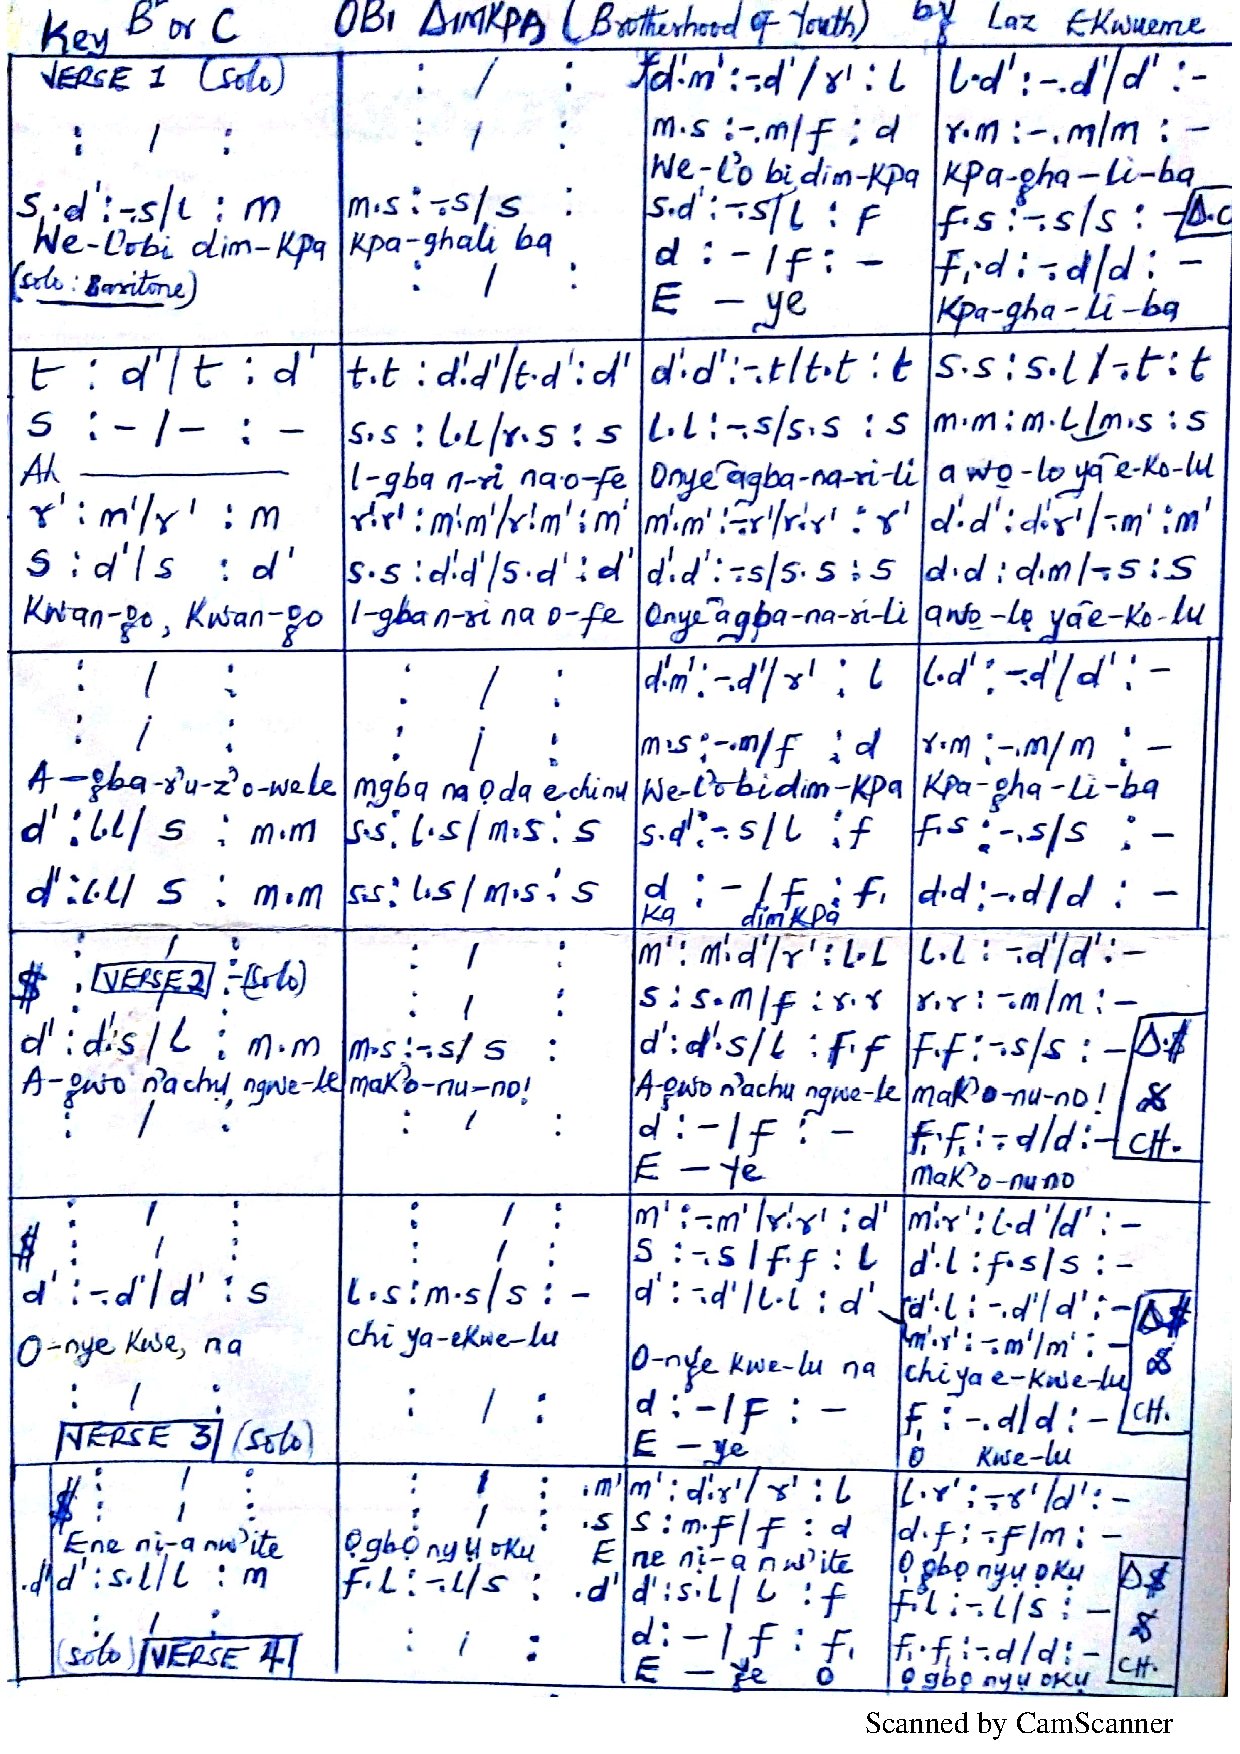 Key B♭ or C OBI DIMKPA (Brotherhood of Youth) by Laz Ekwueme
VERSE 1 (solo) : / : ƒd'.m' : -.d'/r' : l l.d' : -.d'/d' : -
: / : : / : m.s : -.m/f : d r.m : -.m/m : -
We-l'o bi dim-kpa kpa-gha-li-ba
s.d' : -.s/l : m m.s : -.s/s : s.d' : -.s/l : f f.s : -.s/s : - D.C
We-l'obi dim-kpa kpa-ghali ba d : - / f : - f₁.d : -.d/d : -
(solo: Baritone) : / : E - ye kpa-gha-li-ba
t : d'/t : d' t.t : d'.d'/t.d' : d' d'.d' : -.t/t.t : t s.s : s.l/-.t : t
s : - / - : - s.s : l.l/r.s : s l.l : -.s/s.s : s m.m : m.l/m.s : s
Ah I-gba n-ri na o-fe Onye agba-na-ri-li a wọ-lo ya e-ko-lu
r' : m'/r' : m r'.r' : m'.m'/r'.m' : m' m'.m' : -.r'/r'.r' : r' d'.d' : d'.r'/-.m' : m'
s : d'/s : d' s.s : d'.d'/s.d' : d' d'.d' : -.s/s.s : s d.d : d.m/-.s : s
Kwan-go, Kwan-go I-gba n-ri na o-fe Onye agba-na-ri-li awọ-lọ ya e-ko-lu
: / : : / : d'.m' : -.d'/r' : l l.d' : -.d'/d' : -
: / : : / : m.s : -.m/f : d r.m : -.m/m : -
A-gba-r'u-z'o-wele mgba na ọda e chinu We-l'obi dim-kpa kpa-gha-li-ba
d' : l.l/ s : m.m s.s : l.s/m.s : s s.d' : -.s/l : f f.s : -.s/s : -
d' : l.l/ s : m.m s.s : l.s/m.s : s d : - / f : f₁ d.d : -.d/d : -
Ka dim'kpa
: / : : / : m' : m'.d'/r' : l.l l.l : -.d'/d' : -
$ VERSE 2 (solo) : / : s : s.m/f : r.r r.r : -.m/m : -
d' : d'.s/l : m.m m.s : -.s/s : d' : d'.s/l : f.f f.f : -.s/s : - D.$
A-gwo n'achụ, ngwe-le mak'o-nu-no! A-gwo n'achu ngwe-le mak'o-nu-no! &
: / : : / : d : - / f : - f₁.f₁ : -.d/d : - CH.
E - ye mak'o-nu no
: / : : / : m' : -.m'/r'.r' : d' m'.r' : l.d'/d' : -
$ : / : : / : s : -.s/f.f : l d'.l : f.s/s : -
d' : -.d'/d' : s l.s : m.s/s : - d' : -.d'/l.l : d' d'.l : -.d'/d' : - D$
m'.r' : -.m'/m' : - &
O-nye kwe, na chi ya-ekwe-lu O-nye kwe-lu na chi ya e-kwe-lu
: / : : / : d : - / f : - f₁ : -.d/d : - CH.
VERSE 3 (solo) E - ye O kwe-lu
$ : / : : / : .m' m' : d'.r'/ r' : l l.r' : -.r'/d' : -
: / : : / : .s s : m.f/f : d d.f : -.f/m : -
Ene ni-a nw'ite Ọgbọ nyụ ọkụ E ne ni-a nw'ite Ọ gbọ nyụ ọkụ
.d' d' : s.l/l : m f.l : -.l/s : .d' d' : s.l/ l : f f.l : -.l/s : - D$
: / : : / : d : - / f : f₁ f₁.f₁ : -.d/d : - &
(solo) VERSE 4 E - ye O Ọ gbọ nyụ ọkụ CH.
Scanned by CamScanner